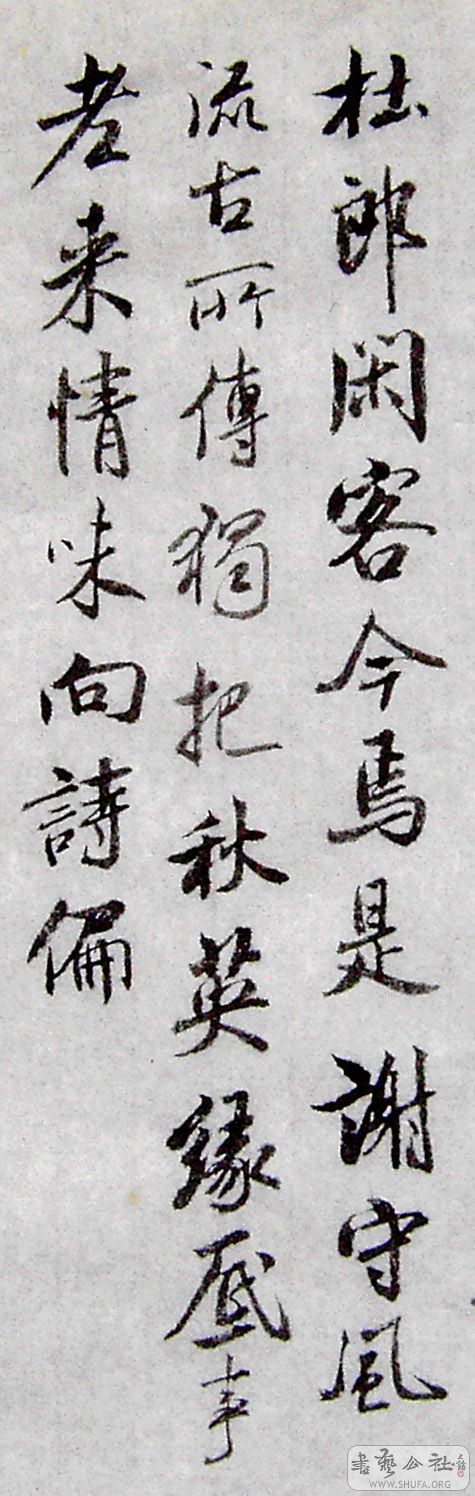 杜郎閑客今焉是謝守風
流古所傳獨把秋英緣底事
老来情味向詩偏
書藝公社
WWW.SHUFA.ORG